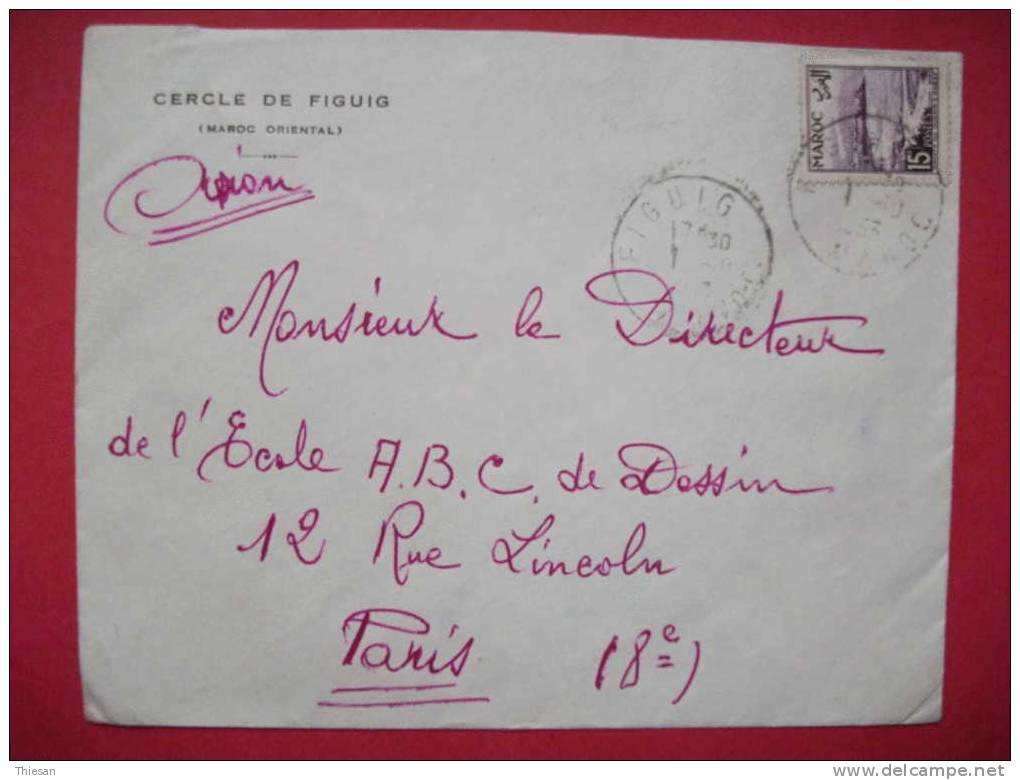 CERCLE DE FIGUIG
(MAROC ORIENTAL)
Avion
MAROC
15
POSTES
FIGUIG
30
MAROC
Monsieur le Directeur
de l'Ecole A.B.C. de Dessin
12 Rue Lincoln
Paris (8e)
Thiesan
www.delcampe.net